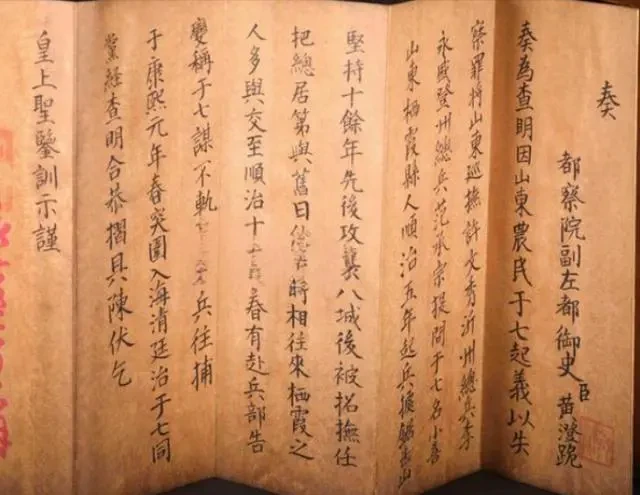 奏
都察院副左都御史臣黄澄跪
奏為查明因山東農民于七起義以失
察罪将山東巡撫許文秀沂州總兵李
永盛登州總兵范承宗提問于七名小喜
山東栖霞縣人順治五年起兵據鋸齒山
堅持十餘年先後攻襲八城後被招撫任
把總居第與舊日將相往來栖霞之
人多與交至順治十春有赴兵部告
變稱于七謀不軌兵往捕
于康熙元年春突圍入海清廷治于七同
黨經查明合恭摺具陳伏乞
皇上聖鑒訓示謹